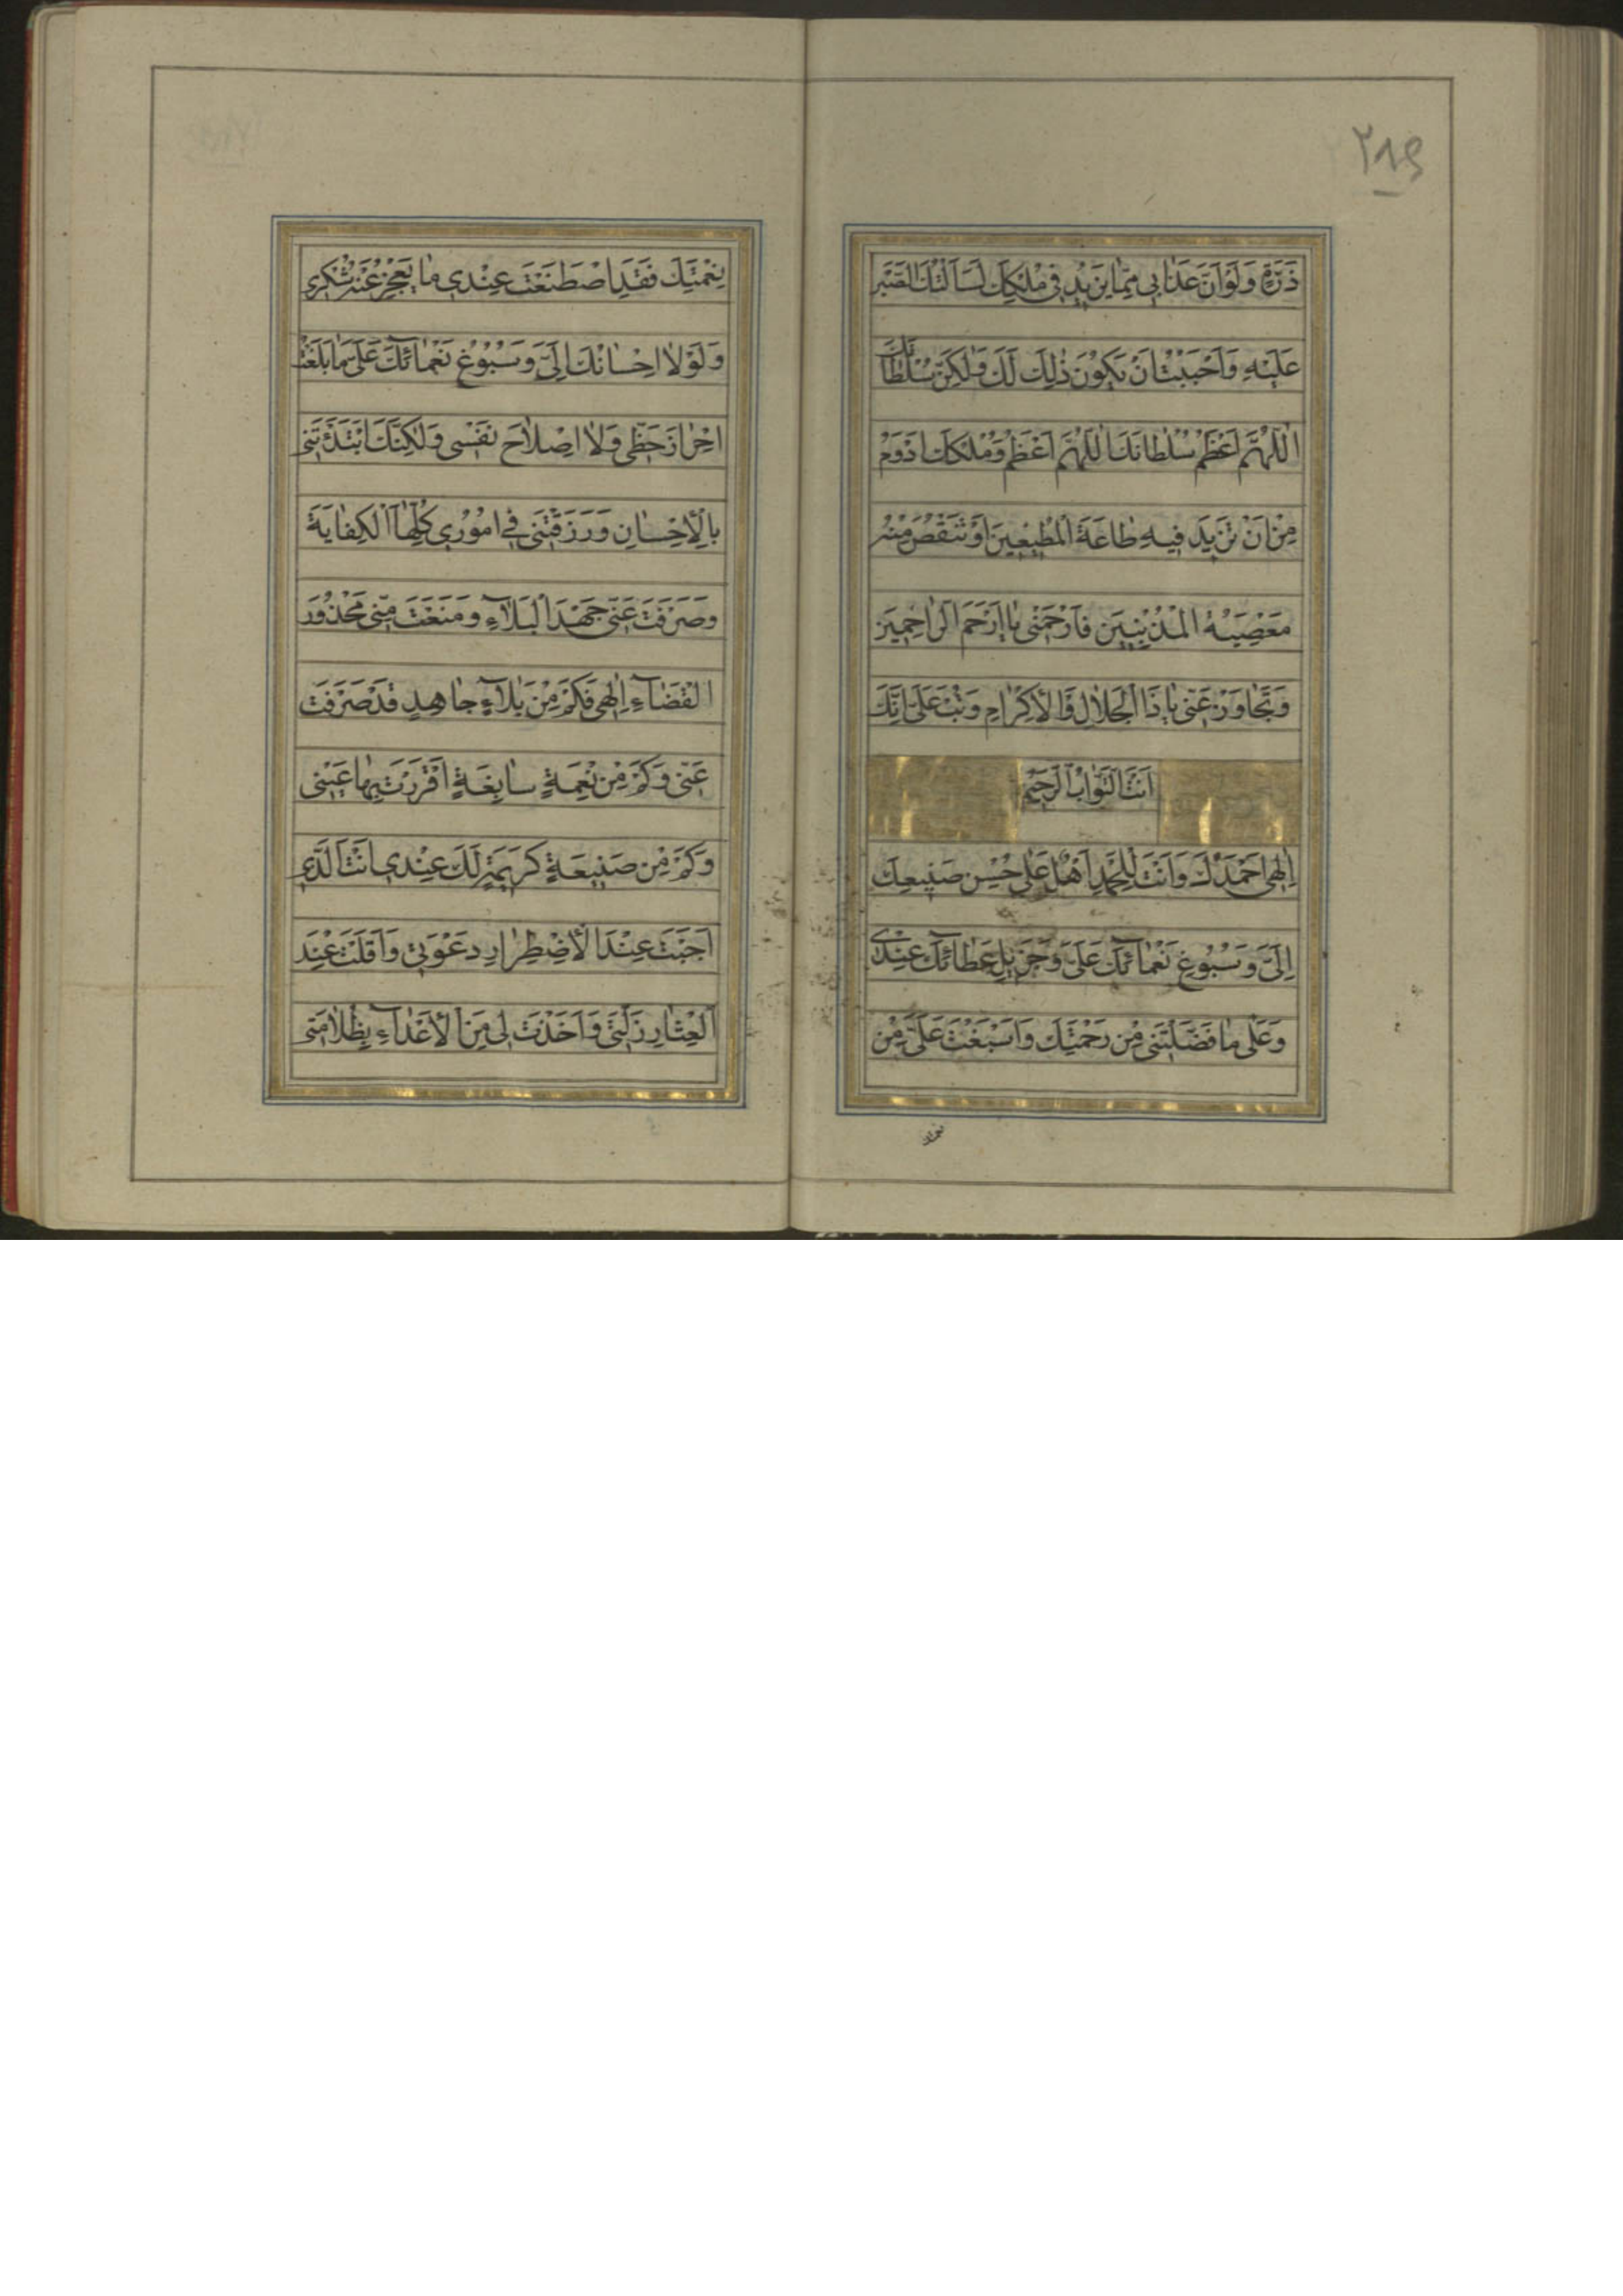 ٢٨٩
ذَرَّةٍ وَلَوْ اَنَّ عَذَابِى مِمَّا يَزِيدُ فِى مُلْكِكَ لَسَاَلْتُكَ الصَّبْرَ
عَلَيْهِ وَاَحْبَبْتُ اَنْ يَكُوْنَ ذٰلِكَ لَكَ وَلٰكِنْ سُلْطَانُكَ
اَللّٰهُمَّ اَعْظَمُ سُلْطَانُكَ اَللّٰهُمَّ اَعْظَمُ وَمُلْكُكَ اَدْوَمُ
مِنْ اَنْ تَزِيدَ فِيهِ طَاعَةُ الْمُطِيعِينَ اَوْ تَنْقُصَ مِنْهُ
مَعْصِيَةُ الْمُذْنِبِينَ فَارْحَمْنِى يَا اَرْحَمَ الرَّاحِمِينَ
وَتَجَاوَزْ عَنِّى يَا ذَا الْجَلَالِ وَالْاِكْرَامِ وَتُبْ عَلَىَّ اِنَّكَ
اَنْتَ التَّوَّابُ الرَّحِيمُ
اِلٰهِى اَحْمَدُكَ وَاَنْتَ لِلْحَمْدِ اَهْلٌ عَلٰى حُسْنِ صَنِيعِكَ
اِلَىَّ وَسُبُوْغِ نَعْمَائِكَ عَلَىَّ وَجَزِيلِ عَطَائِكَ عِنْدِى
وَعَلٰى مَا فَضَّلْتَنِى مِنْ رَحْمَتِكَ وَاَسْبَغْتَ عَلَىَّ مِنْ
نِعْمَتِكَ فَقَدِ اصْطَنَعْتَ عِنْدِى مَا يَعْجِزُ عَنْهُ شُكْرِى
وَلَوْلَا اِحْسَانُكَ اِلَىَّ وَسُبُوْغُ نَعْمَائِكَ عَلَىَّ مَا بَلَغْتُ
اِحْرَازَ حَظِّى وَلَا اِصْلَاحَ نَفْسِى وَلٰكِنَّكَ ابْتَدَئْتَنِى
بِالْاِحْسَانِ وَرَزَقْتَنِى فِى اُمُوْرِى كُلِّهَا الْكِفَايَةَ
وَصَرَفْتَ عَنِّى جَهْدَ الْبَلَاءِ وَمَنَعْتَ مِنِّى مَحْذُوْرَ
الْقَضَاءِ اِلٰهِى فَكَمْ مِنْ بَلَاءٍ جَاهِدٍ قَدْ صَرَفْتَ
عَنِّى وَكَمْ مِنْ نِعْمَةٍ سَابِغَةٍ اَقْرَرْتَ بِهَا عَيْنِى
وَكَمْ مِنْ صَنِيعَةٍ كَرِيمَةٍ لَكَ عِنْدِى اَنْتَ الَّذِى
اَجَبْتَ عِنْدَ الْاِضْطِرَارِ دَعْوَتِى وَاَقَلْتَ عِنْدَ
الْعِثَارِ زَلَّتِى وَاَخَذْتَ لِى مِنَ الْاَعْدَاءِ بِظُلَامَتِى